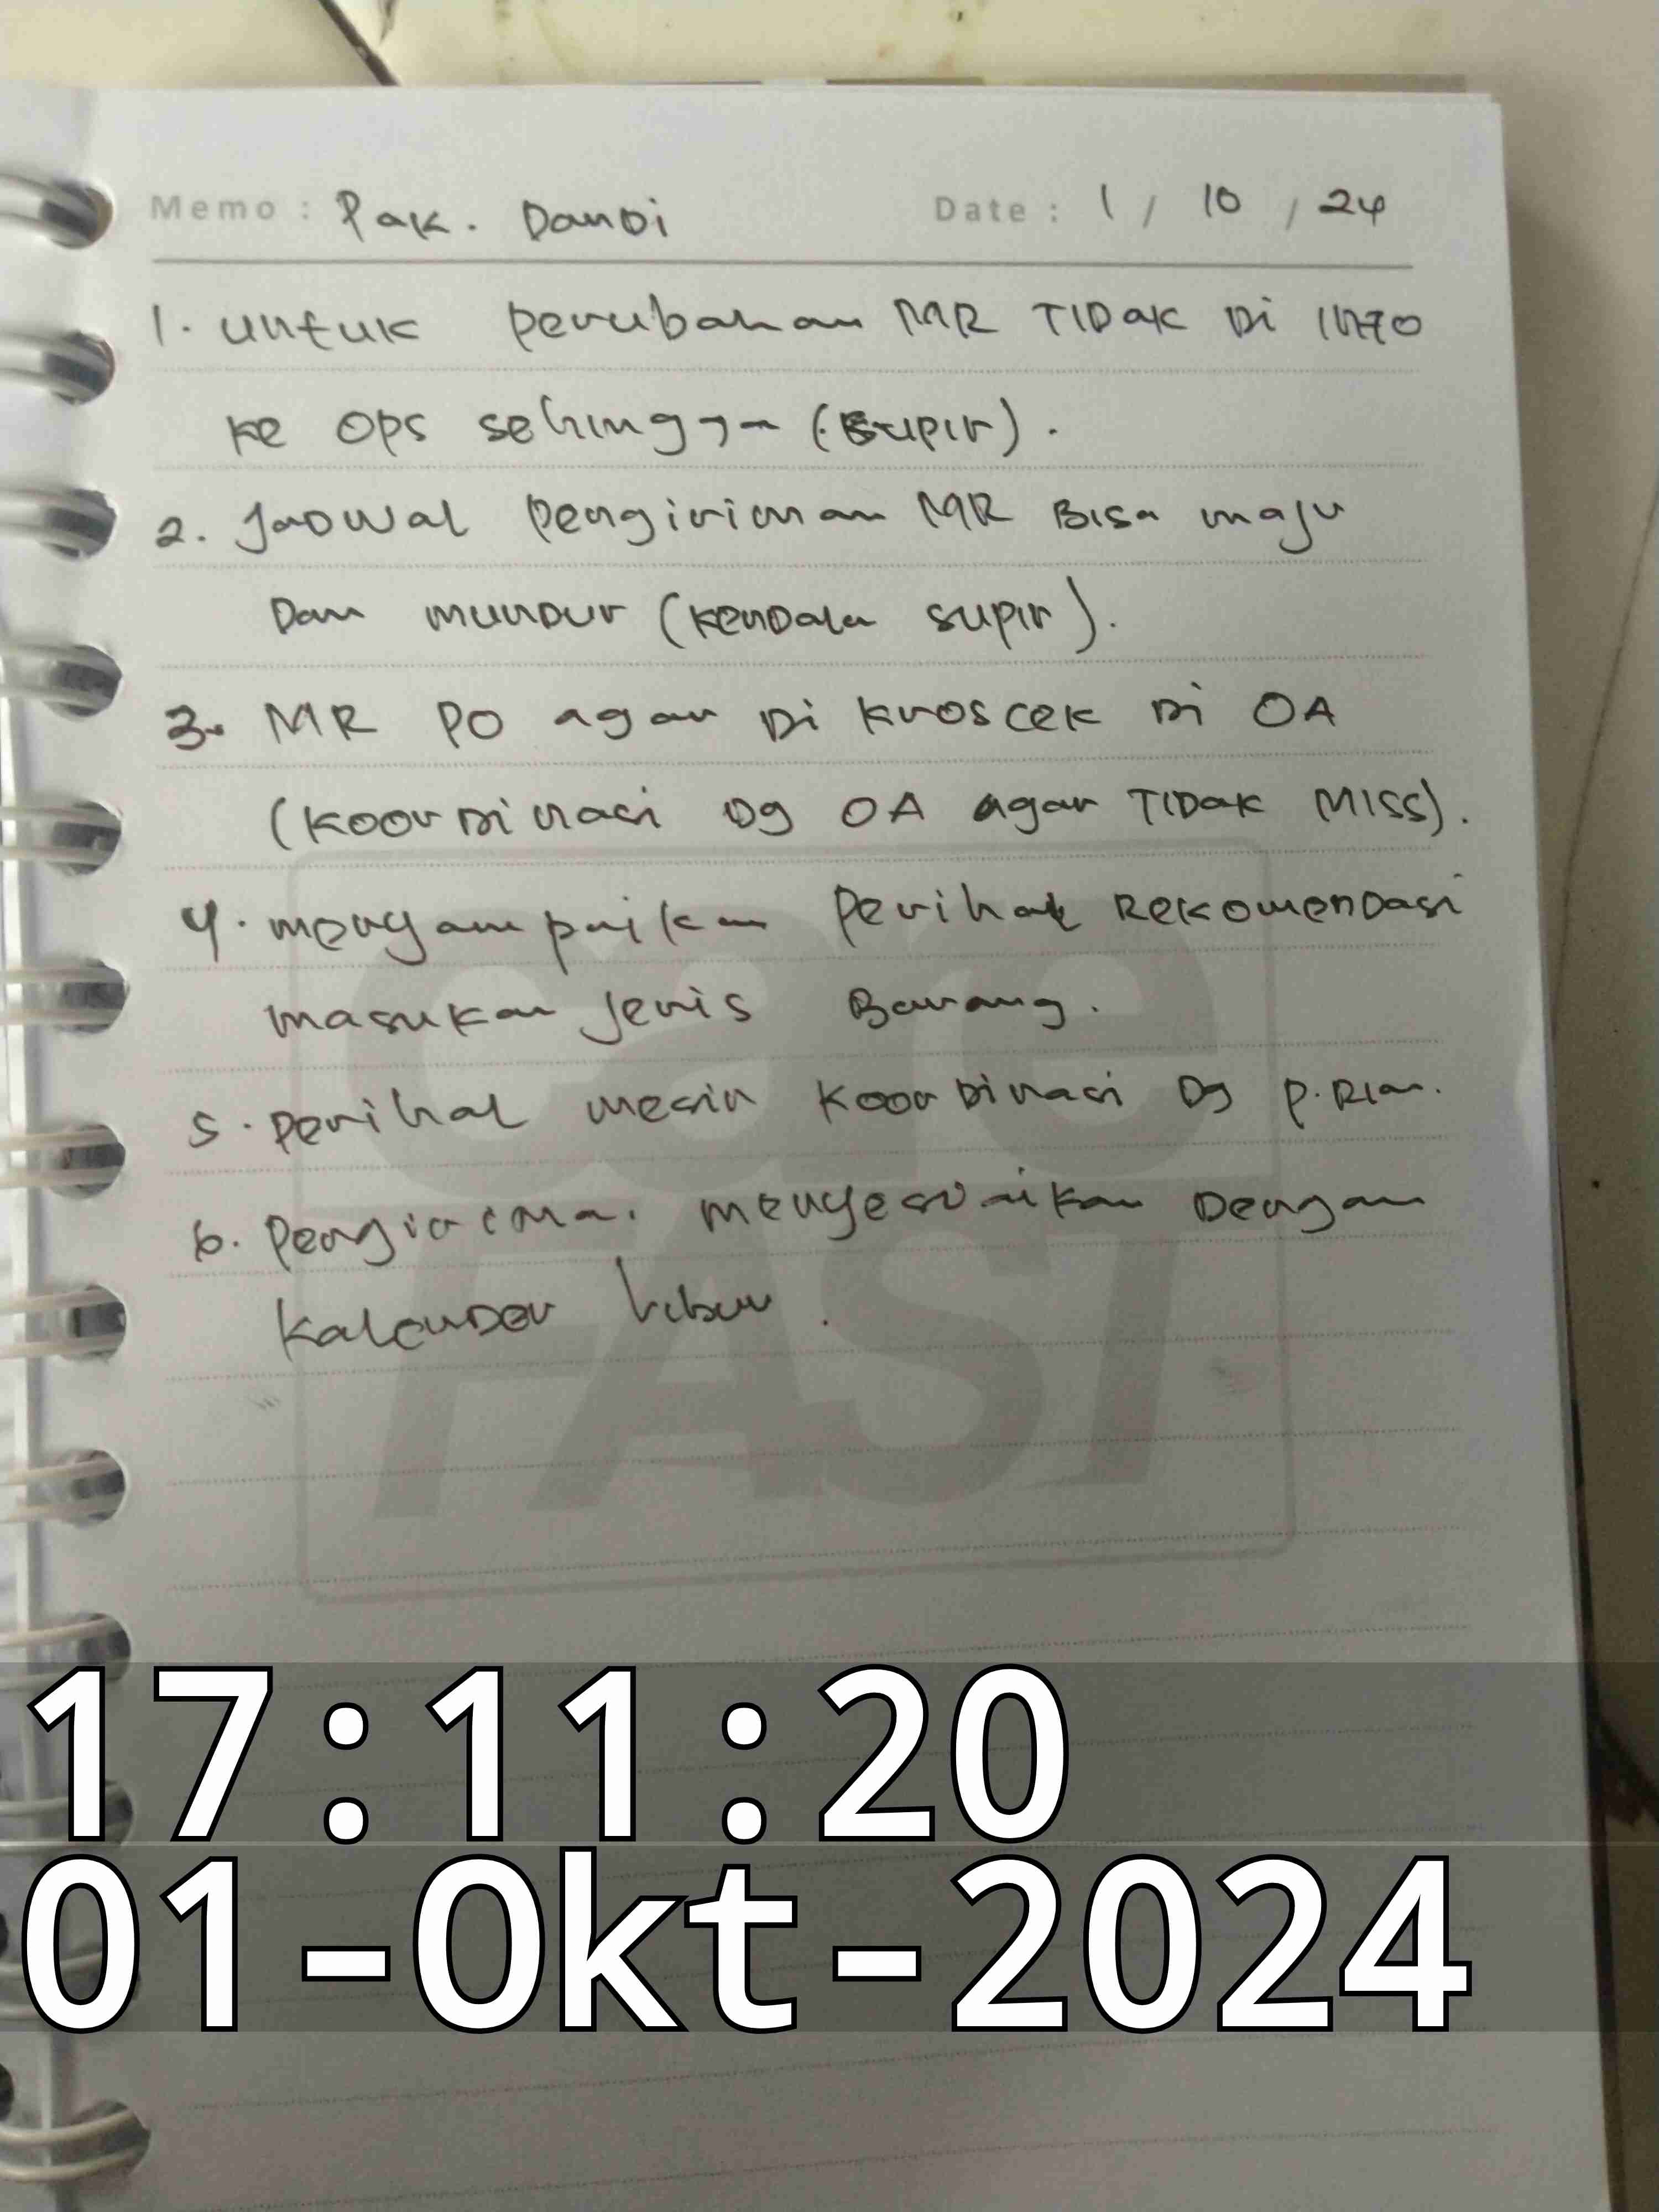 Memo : Pak. Dandi Date : 1 / 10 / 24
1. untuk perubahan MR TIDak Di info
ke OPS sehingga (supir).
2. Jadwal pengiriman MR Bisa maju
Dan munDur (kenDala supir).
3. MR PO agar Di kroscek Di OA
(koorDinasi Dg OA agar TIDak MISS).
4. menyampaikan perihal RekomenDasi
masukan jenis Barang.
5. perihal mesin koorDinasi Dg P. Rian.
6. pengiriman menyesuaikan Dengan
kalenDer libur.
care
FAST
17:11:20
01-Okt-2024